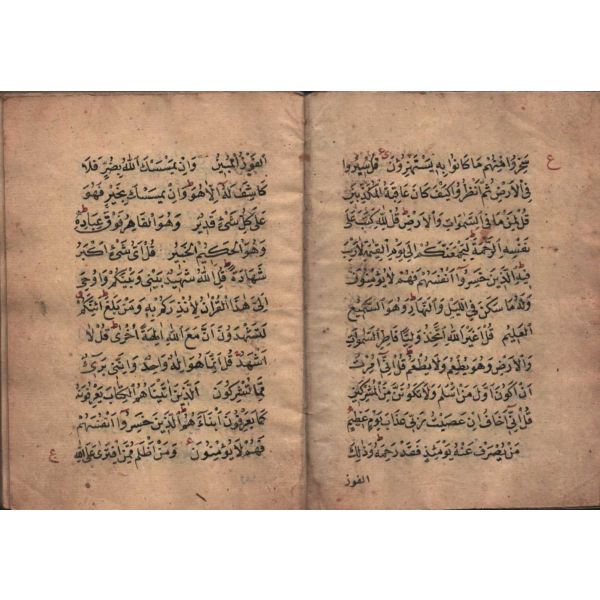 سخروا منهم ما كانوا به يستهزؤن قل سيروا
في الارض ثم انظروا كيف كان عاقبة المكذبين
قل لمن ما في السموات والارض قل لله كتب على
نفسه الرحمة ليجمعنكم الى يوم القيمة لا ريب
فيه الذين خسروا انفسهم فهم لا يؤمنون
وله ما سكن في الليل والنهار وهو السميع
العليم قل اغير الله اتخذ وليا فاطر السموات
والارض وهو يطعم ولا يطعم قل اني امرت
ان اكون اول من اسلم ولا تكونن من المشركين
قل اني اخاف ان عصيت ربي عذاب يوم عظيم
من يصرف عنه يومئذ فقد رحمه وذلك
الفوز
الفوز المبين وان يمسسك الله بضر فلا
كاشف له الا هو وان يمسسك بخير فهو
على كل شئ قدير وهو القاهر فوق عباده
وهو الحكيم الخبير قل اى شئ اكبر
شهادة قل الله شهيد بينى وبينكم واوحى
الى هذا القران لانذركم به ومن بلغ ائنكم
لتشهدون ان مع الله الهة اخرى قل لا
اشهد قل انما هو اله واحد واننى برئ
مما تشركون الذين اتيناهم الكتاب يعرفونه
كما يعرفون ابناءهم الذين خسروا انفسهم
فهم لا يؤمنون ومن اظلم ممن افترى على الله